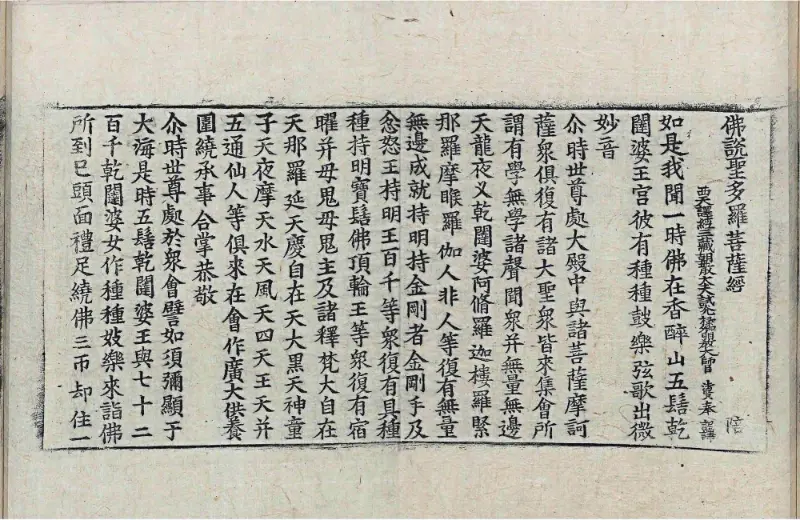 佛說聖多羅菩薩經
西天譯經三藏朝散大夫試光祿 大師 賢奉 詔譯
如是我聞一時佛在香醉山五髻乾
闥婆王宮彼有種種鼓樂弦歌出微
妙音
尒時世尊處大殿中與諸菩薩摩訶
薩衆俱復有諸大聖衆皆來集會所
謂有學無學諸聲聞衆并無量無邊
天龍夜叉乾闥婆阿脩羅迦樓羅緊
那羅摩睺羅伽人非人等復有無量
無邊成就持明持金剛者金剛手及
忿怒王持明王百千等衆復有具種
種持明寶髻佛頂輪王等衆復有宿
曜并母鬼母鬼主及諸釋梵大自在
天那羅延天慶自在天大黑天神童
子天夜摩天水天風天四天王天并
五通仙人等俱來在會作廣大供養
圍繞承事合掌恭敬
尒時世尊處於衆會譬如須彌顯于
大海是時五髻乾闥婆王與七十二
百千乾闥婆女作種種妓樂來詣佛
所到巳頭面禮足繞佛三帀却住一